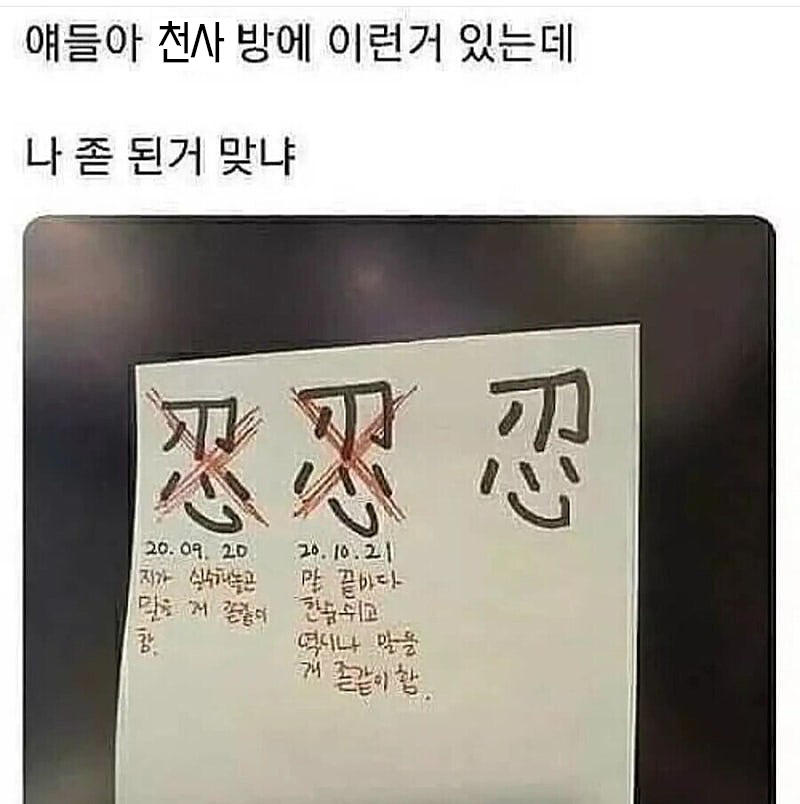 얘들아 천사 방에 이런거 있는데
나 좆 된거 맞냐
忍 忍 忍
20.09.20
지가 실수해놓곤
말을 개 좆같이
함.
20.10.21
말 끝마다
한숨쉬고
역시나 말을
개 좆같이 함.